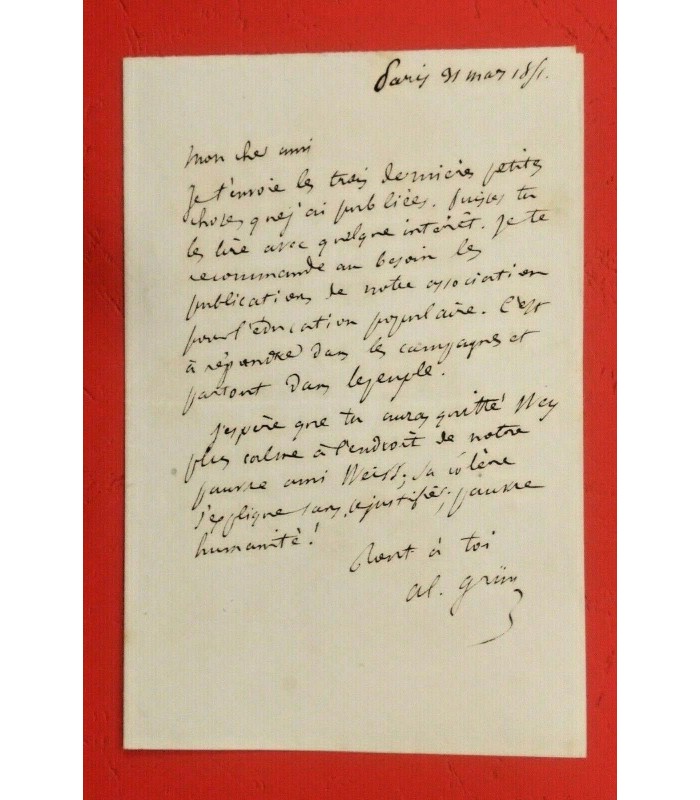 Paris 31 mars 1851.
Mon cher ami
Je t'envoie les trois dernières petites
choses que j'ai publiées. Puisses tu
les lire avec quelque intérêt. Je te
recommande au besoin les
publications de notre association
pour l'éducation populaire. C'est
à répandre dans les campagnes et
partout dans le peuple.
J'espère que tu auras quitté
plus calme à l'endroit de notre
pauvre ami Weiss; sa colère
s'explique sans se justifier, pauvre
humanité!
Tout à toi
al. grün